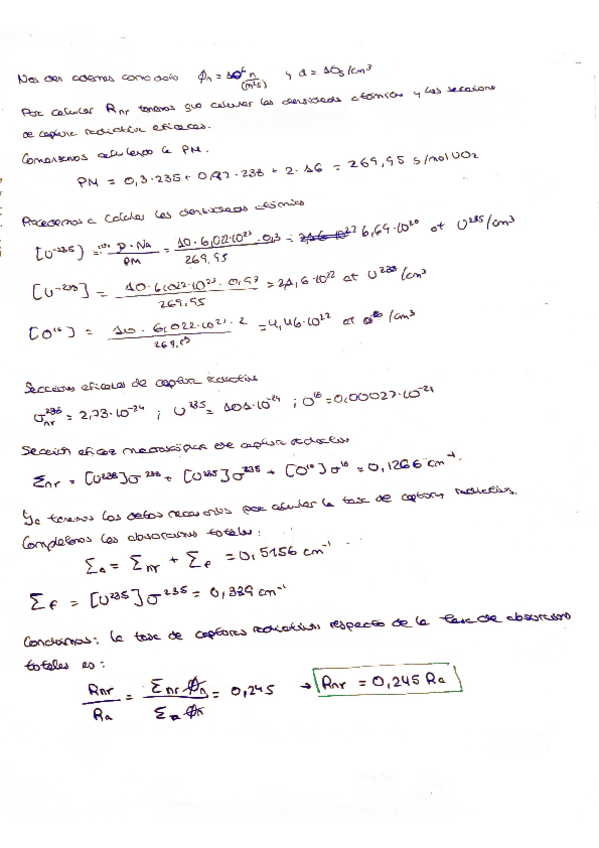 Nos dan además como dato φn = 10⁶ n/(m²s) y d = 10 g/cm³
Para calcular Rnr tenemos que calcular las densidades atómicas y las secciones
de captura radiativa eficaces.
Comenzamos calculando la PM.
PM = 0,3·235 + 0,97·238 + 2·16 = 269,95 g/mol UO₂
Procedemos a calcular las densidades atómicas
[U-235] = D·Na/PM = 10·6,022·10²³·0,3/269,95 = 6,69·10²⁰ at U²³⁵/cm³
[U-238] = 10·6,022·10²³·0,97/269,95 = 21,6·10²² at U²³⁸/cm³
[O¹⁶] = 10·6,022·10²³·2/269,95 = 4,46·10²² at O¹⁶/cm³
Secciones eficaces de captura radiativa
σnr²³⁸ = 2,73·10⁻²⁴ ; U²³⁵ = 101·10⁻²⁴ ; O¹⁶ = 0,00027·10⁻²⁴
Sección eficaz macroscópica de captura radiativa
Σnr = [U²³⁸]σ²³⁸ + [U²³⁵]σ²³⁵ + [O¹⁶]σ¹⁶ = 0,1266 cm⁻¹.
Ya tenemos los datos necesarios para calcular la tasa de captura radiativa.
Completamos las absorciones totales:
Σa = Σnr + Σf = 0,5156 cm⁻¹
Σf = [U²³⁵]σ²³⁵ = 0,389 cm⁻¹
Concluimos: la tasa de capturas radiativas respecto de la tasa de absorciones
totales es:
Rnr/Ra = Σnr φn/Σa φn = 0,245 → Rnr = 0,245 Ra